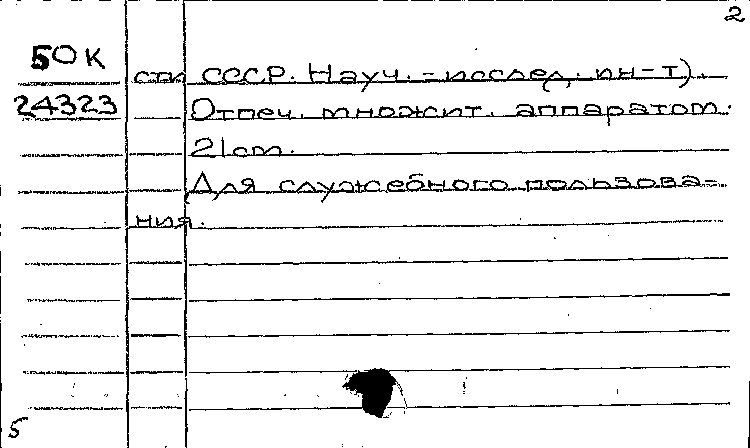 2
50К
сти СССР. Науч.-исслед. ин-т).
24323
Отпеч. множит. аппаратом.
21 cm.
Для служебного пользова-
ния.
5